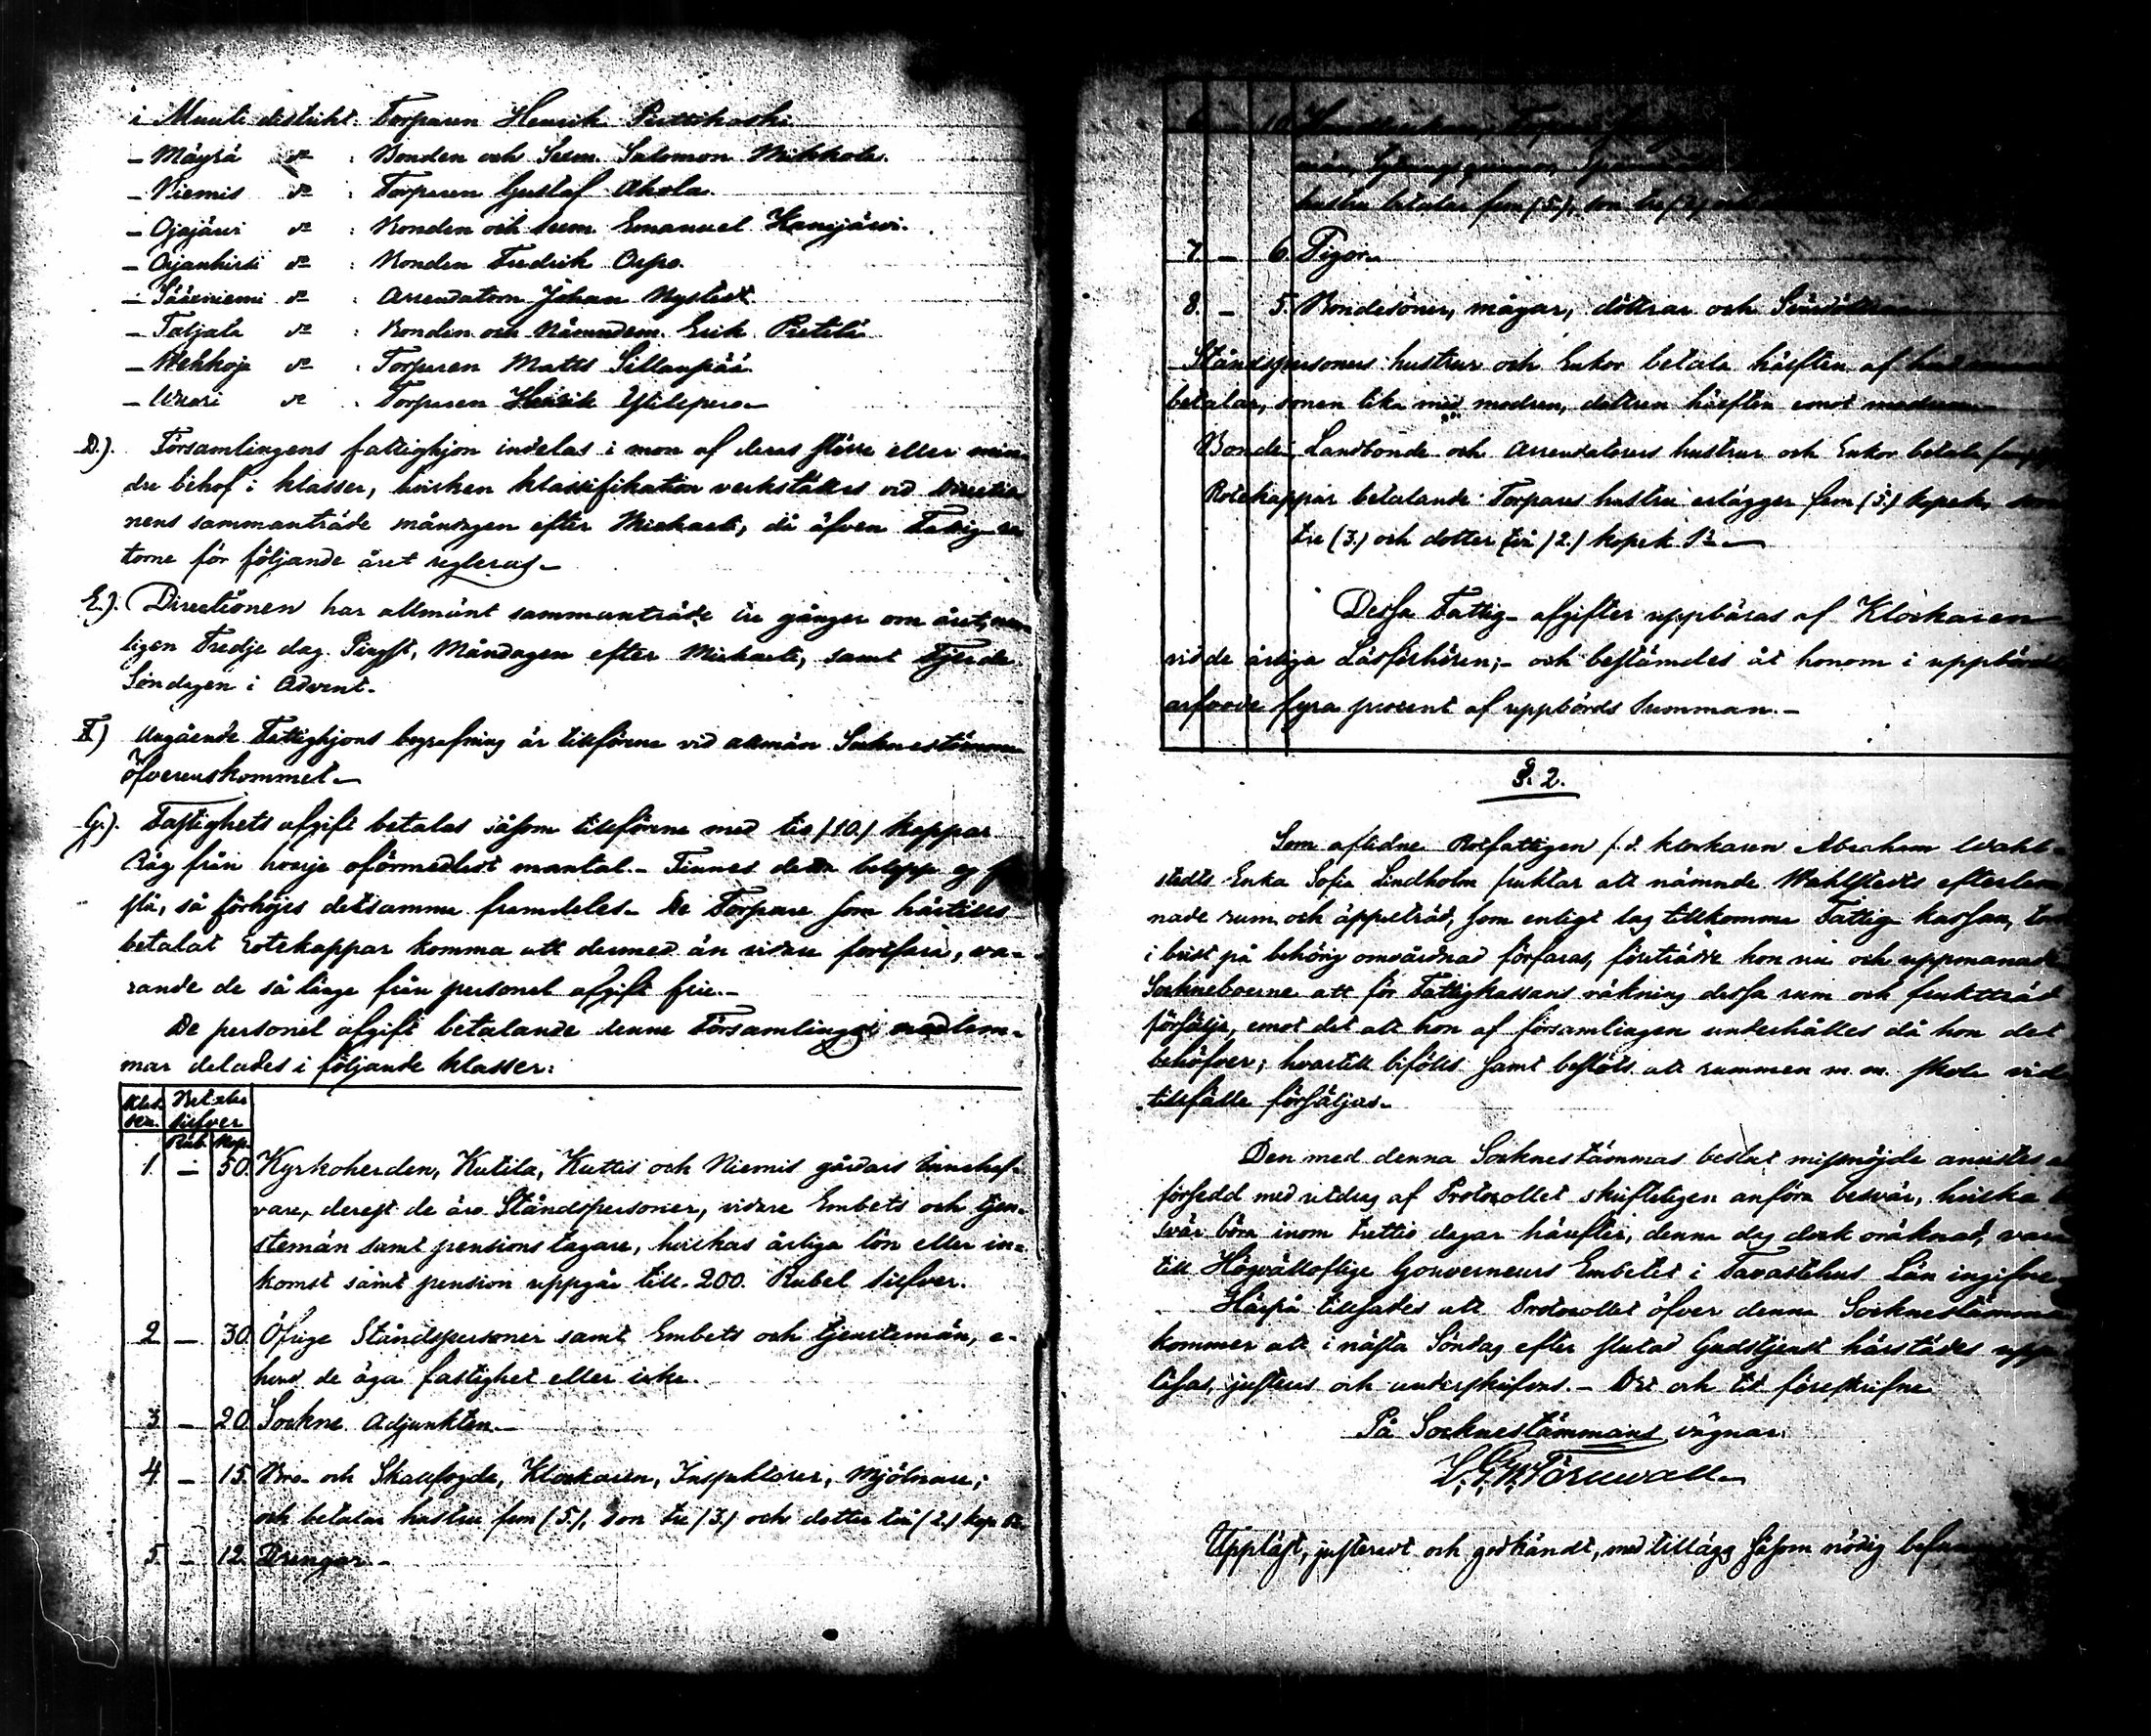 i Muuli distrikt: Torparen Henrik Perttikoski
— Mäyrä do : Bonden och Sexm. Salomon Mikkola.
— Niemis do : Torparen Gustaf Ahola
— Ojajärvi do : Bonden och Sexm Emanuel Kanijärvi.
— Orjanhirsi do : Bonden Fredrik Orpo.
— Sääxniemi do : Arrendatorn Johan Nystedt
— Taljala do : Bonden och Nämndem. Erik Pietilä
— do : Torparen Matts Sillanpää
— do : Torparen Henrik
D.). Församlingens fattighjon indelas i mon af deras större eller min-
dre behof i klasser, hvilken klassifikation verkställes vid Directio
nens sammanträde måndagen efter Michaeli, då äfven
torne för följande året regleras.—
E.). Directionen har allmänt sammanträde tre gånger om året, nem-
ligen Tredje dag Pingst, Måndagen efter Michaeli, samt Fjerde
Söndagen i Advent.
F.) Angående Fattighjons begrafning är tillförene vid allmän Socknestämma
öfverenskommet.—
G.). Fastighets afgift betalas såsom tillförene med tio (10.) kappar
Råg från hvarje oförmedladt mantal.— Finnes detta belopp ej
slå, så förhöjes detsamma framdeles. De Torpare som härtills
betalat Rotekappar komma att dermed än vidare fortfara, va-
rande de så länge från personel afgift frie.—
De personel afgift betalande denne Församlings medlem-
mar delades i följande klasser:
Klas- Betalar
ser. silfver
Rub. Kop.
1. — 50. Kyrkoherden, Kutila, Kuttis och Niemis gårdars innehaf-
vare, derest de äro Ståndspersoner, vidare Embets och tjen-
stemän samt pensions tagare, hvilkas årliga lön eller in-
komst samt pension uppgår till 200. Rubel silfver.
2 — 30. Öfrige Ståndspersoner samt Embets och tjenstemän, e-
hvad de äga fastighet eller icke.
3 — 20. Sockne Adjunkten.—
4 — 15. Bro- och Skallfogde, Klockaren, Inspektorer, Mjölnare;
och betalar hustru fem (5.), son tre (3.) och dotter två (2.) kop
5. — 12. Drengar.—
6 — 10.
hustru betalar fem (5.), son tre (3.)
7. — 6. Pigor.
8. — 5. Bondesöner, mågar, döttrar och Sonedöttrar
Ståndspersoners hustrur och Enkor betala hälften af hvad
betalar, sonen lika med modren, dottren hälften emot modren
Bonde- Landbonde och Arrendatorers hustrur och Enkor betala
Rotekappar betalande Torpares hustru erlägger fem (5.) kopek, son
tre (3.) och dotter två (2.) kopek
Dessa Fattig-afgifter uppbäras af Klockaren
vid de årliga Läsförhören;— och bestämdes åt honom i uppbörds
arfvode fyra procent af uppbörds Summan.—
§. 2.
Som aflidne Rotfattigen f.d. klockaren Abraham Wahl-
stedts Enka Sofia Lindholm fruktar att nämnde Wahlstedts efterlem-
nade rum och äppelträd, som enligt lag tillkomma Fattig kassan,
i brist på behörig omvårdnad förfaras, företrädde hon nu och uppmanade
Sockneboerne att för Fattigkassans räkning dessa rum och fruktträd
försälja, emot det att hon af församlingen underhålles då hon det
behöfver; hvartill bifölls samt beslöts att rummen m. m. skola vid
tillfälle försäljas.
Den med denna Socknestämmas beslut missnöjde anvistes
försedd med utdrag af Protocollet skrifteligen anföra besvär, hvilka be
svär böra inom trettio dagar härefter, denna dag dock oräknad, vara
till Högvällofliga Gouverneurs Embetet i Tavastehus Län ingifne
Härpå tillsades att Protocollet öfver denna Socknestämma
kommer att i nästa Söndag efter slutad Gudstjenst härstädes upp
läsas, justeras och underskrifvas.— Dat och tid föreskrifne
På Socknestämmans vägnar:
L. G. W. Törnwall
Uppläst, justeradt och godkändt, med tillägg såsom nödig